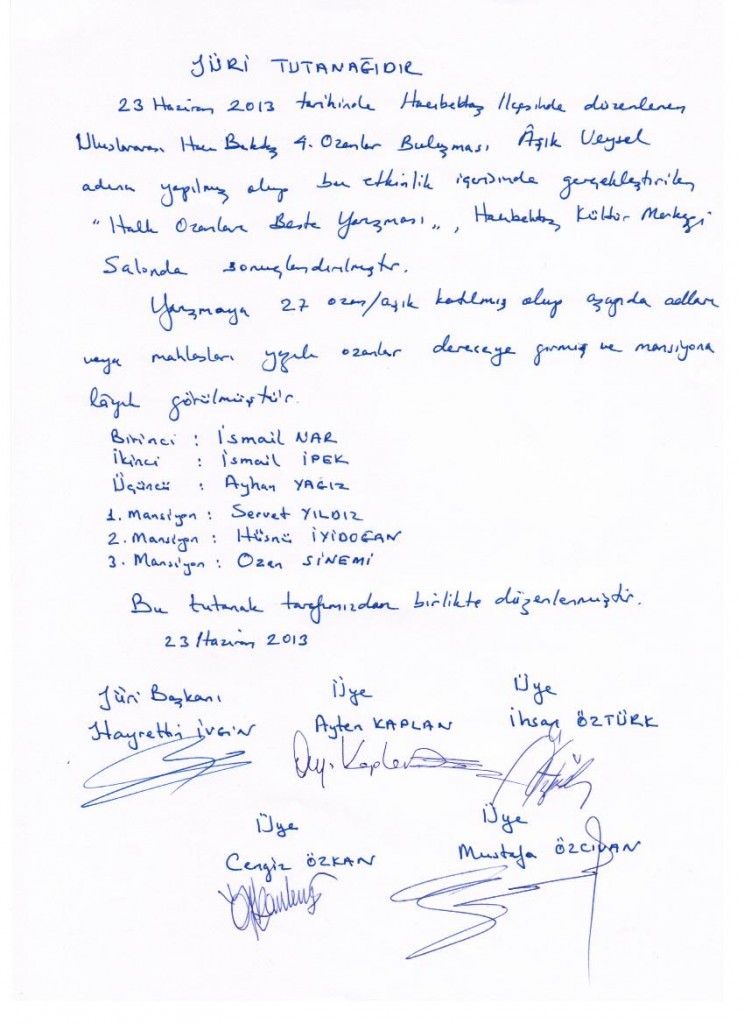 JÜRİ TUTANAĞIDIR
23 Haziran 2013 tarihinde Hacıbektaş İlçesinde düzenlenen
Uluslararası Hacı Bektaş 4. Ozanlar Buluşması Âşık Veysel
adına yapılmış olup bu etkinlik içerisinde gerçekleştirilen
"Halk Ozanları Beste Yarışması", Hacıbektaş Kültür Merkezi
Salonda sonuçlandırılmıştır.
Yarışmaya 27 ozan/aşık katılmış olup aşağıda adları
veya mahlasları yazılı ozanlar dereceye girmiş ve mansiyona
lâyık görülmüştür.
Birinci : İsmail NAR
İkinci : İsmail İPEK
Üçüncü : Ayhan YAĞIZ
1. Mansiyon : Servet YILDIZ
2. Mansiyon : Hüsnü İYİDOĞAN
3. Mansiyon : Ozan SİNEMİ
Bu tutanak tarafımızdan birlikte düzenlenmiştir.
23 Haziran 2013
Jüri Başkanı Üye Üye
Hayrettin İVGİN Ayten KAPLAN İhsan ÖZTÜRK
Üye Üye
Cengiz ÖZKAN Mustafa ÖZCİVAN